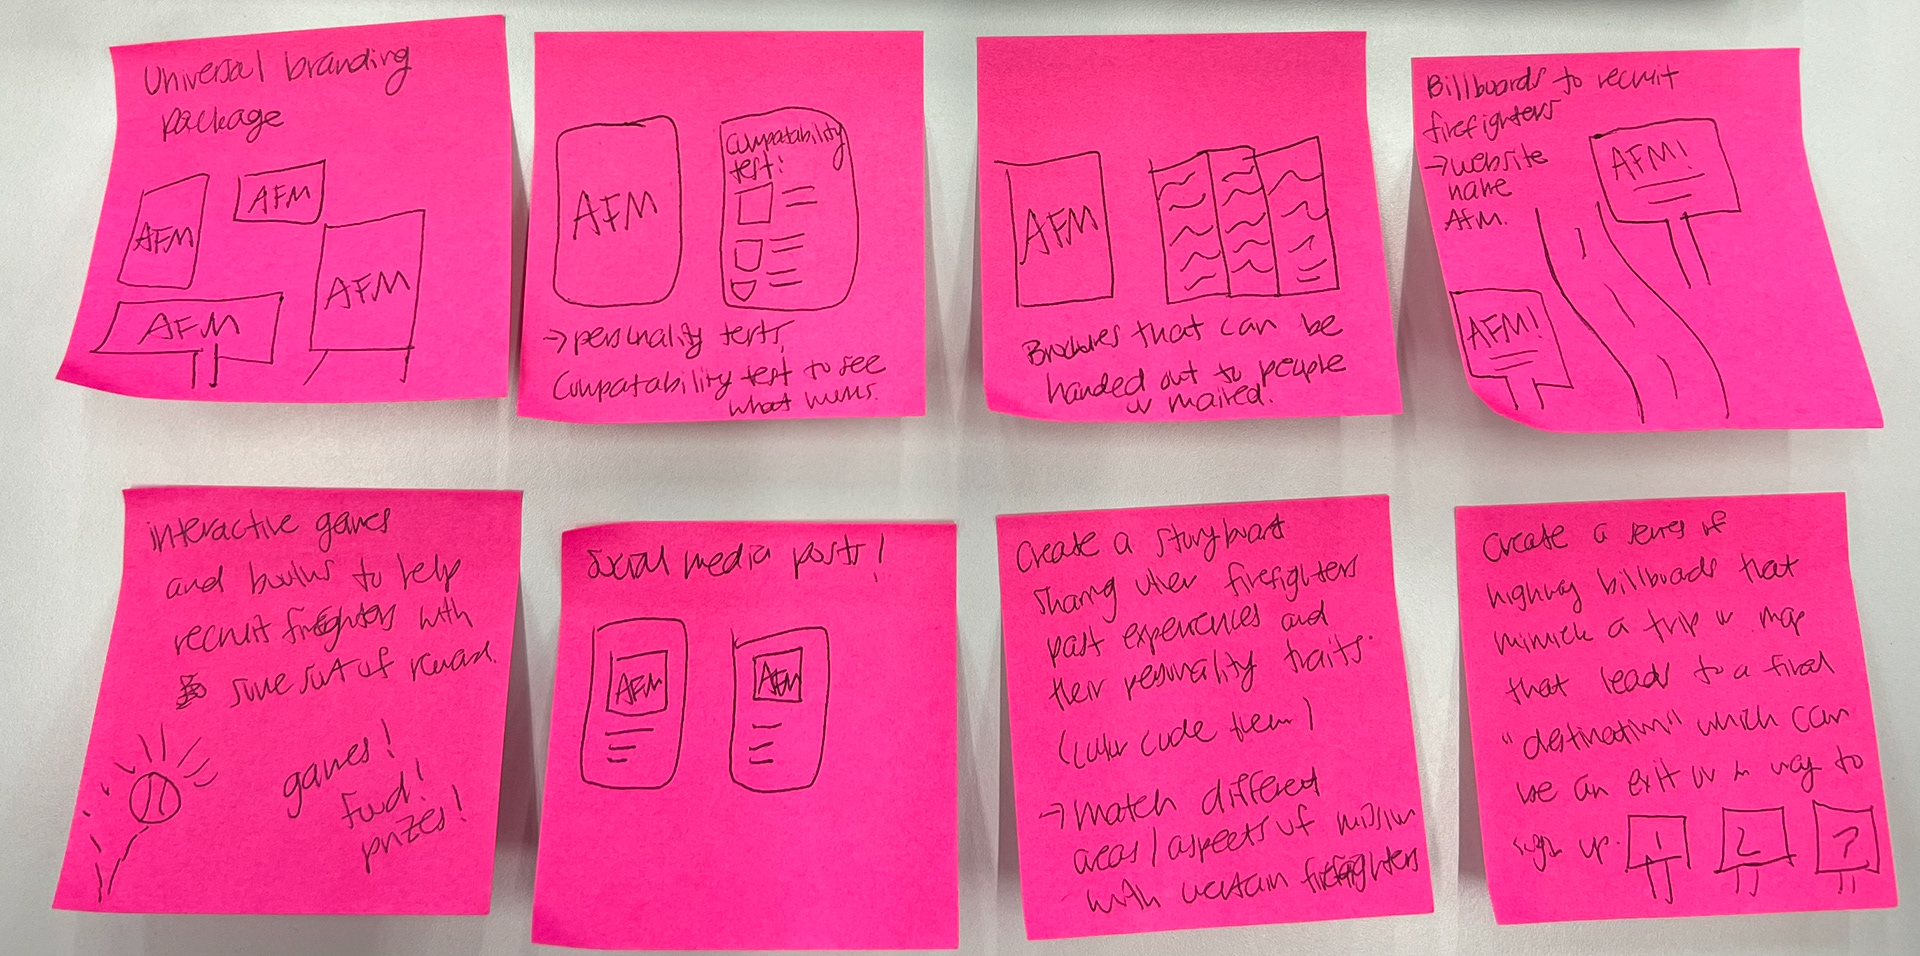 Universal branding
package
AFM
AFM
AFM
AFM
AFM
Cumpatability
test:
→ personality tests,
Cumpatability test to see
what
AFM
Brochures that can be
handed out to people
or mailed.
Billboards to recruit
firefighters
→ website
name
AFM.
AFM!
AFM!
interactive games
and booths to help
recruit firefighters with
some sort of reward.
games!
food!
prizes!
Social media posts!
AFM
AFM
Create a storyboard
sharing other firefighters
past experiences and
their personality traits.
(color code them)
→ match different
areas / aspects of mission
with certain firefighters
Create a series of
highway billboads that
mimick a trip or map
that leads to a final
"destination" which can
be an exit or a way to
sign up.
1
2
?